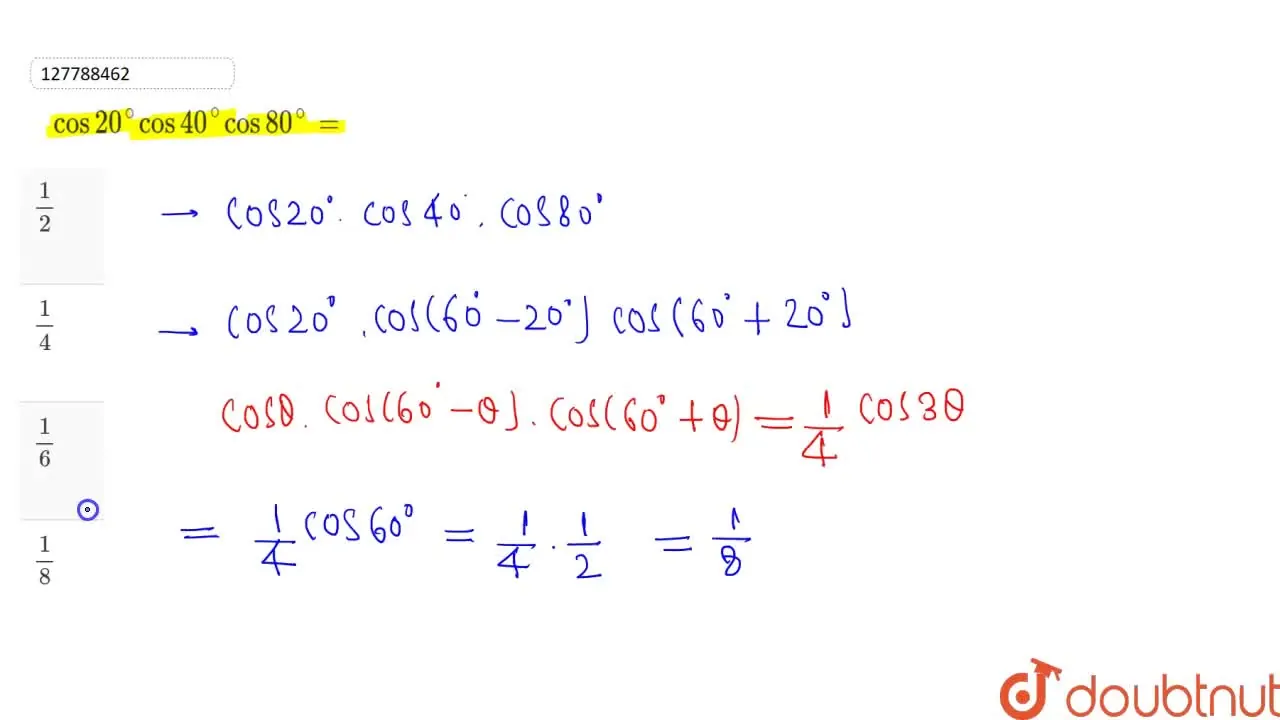 127788462
cos 20° cos 40° cos 80° =
1/2
→ cos20°. cos40°. cos80°
1/4
→ cos20° .cos(60°-20°) cos(60°+20°)
cosθ. cos(60°-θ). cos(60°+θ) = 1/4 cos3θ
1/6
= 1/4 cos60° = 1/4 . 1/2 = 1/8
1/8
doubtnut